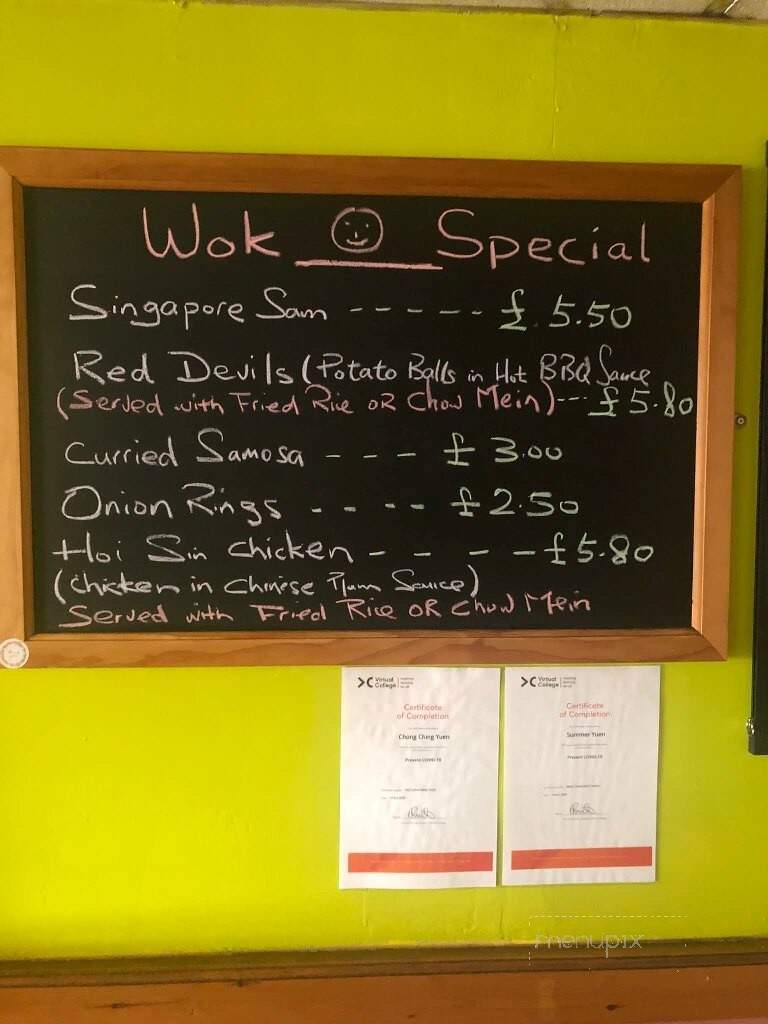 Wok Special
Singapore Sam ----- £5.50
Red Devils (Potato Balls in Hot BBQ Sauce
(Served with Fried Rice OR Chow Mein)--- £5.80
Curried Samosa --- £3.00
Onion Rings ---- £2.50
Hoi Sin chicken ---- £5.80
(Chicken in Chinese Plum Sauce)
Served with Fried Rice OR Chow Mein
Virtual College
Certificate
of Completion
Chong Ching Yuen
Prevent COVID-19
Virtual College
Certificate
of Completion
Summer Yuen
Prevent COVID-19
menupix